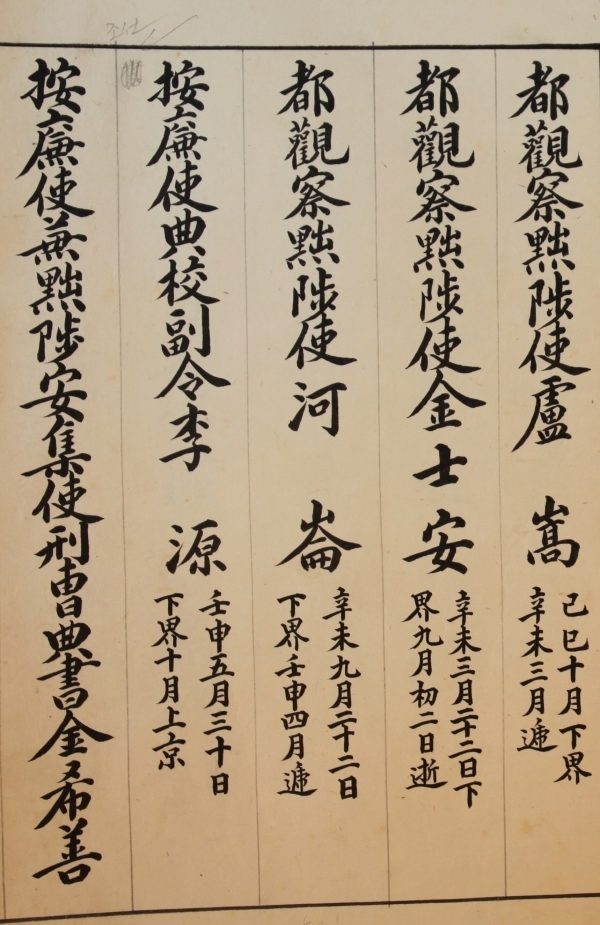 都觀察黜陟使盧 嵩
己巳十月下界
辛未三月遞
都觀察黜陟使金士安
辛未三月二十二日下
界九月初二日逝
都觀察黜陟使河 崙
辛未九月二十二日
下界壬申四月遞
按廉使典校副令李 源
壬申五月三十日
下界十月上京
按廉使兼黜陟安集使刑曹典書金希善
조선